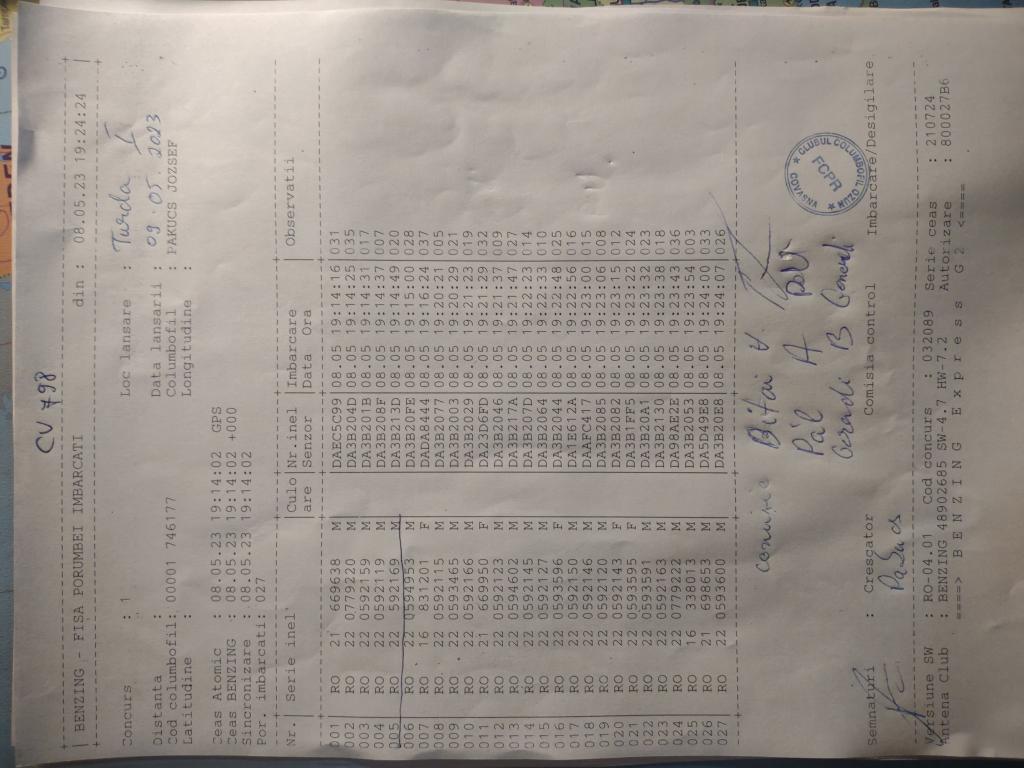 CV 798
BENZING - FISA PORUMBEI IMBARCATI din : 08.05.23 19:24:24
Concurs : 1 Loc lansare : Turda I
Distanta : Data lansarii : 09.05.2023
Cod columbofil: 00001 746177 Columbofil : PAKUCS JOZSEF
Latitudine : Longitudine :
Ceas Atomic : 08.05.23 19:14:02 GPS
Ceas BENZING : 08.05.23 19:14:02 +000
Sincronizare : 08.05.23 19:14:02
Por. imbarcati: 027
Nr.| Serie inel |Culo|Nr.inel |Imbarcare |Observatii
|are |Senzor |Data Ora
001 RO 21 669638 M DAEC5C99 08.05 19:14:16 031
002 RO 22 0779220 M DA3B204D 08.05 19:14:25 035
003 RO 22 0592159 M DA3B201B 08.05 19:14:31 017
004 RO 22 0592119 M DA3B208F 08.05 19:14:37 007
005 RO 22 0592169 M DA3B213D 08.05 19:14:49 020
006 RO 22 0594953 M DA3B20FE 08.05 19:15:00 028
007 RO 16 831201 F 1ADA8444 08.05 19:16:24 037
008 RO 22 0592115 M DA3B2077 08.05 19:20:21 005
009 RO 22 0593465 M DA3B2003 08.05 19:20:29 021
010 RO 22 0592166 M DA3B2029 08.05 19:21:23 019
011 RO 21 669950 F DA23D6FD 08.05 19:21:29 032
012 RO 22 0592123 M DA3B2046 08.05 19:21:37 009
013 RO 22 0594602 M DA3B217A 08.05 19:21:47 027
014 RO 22 0592145 M DA3B207D 08.05 19:22:23 014
015 RO 22 0592127 M DA3B2064 08.05 19:22:33 010
016 RO 22 0593596 F DA3B2044 08.05 19:22:48 025
017 RO 22 0592150 M DA1E612A 08.05 19:22:56 016
018 RO 22 0592149 M DAAFC417 08.05 19:23:00 015
019 RO 22 0592120 M DA3B2085 08.05 19:23:06 008
020 RO 22 0592143 F DA3B2082 08.05 19:23:15 012
021 RO 22 0593595 F DA3B1FF5 08.05 19:23:22 024
022 RO 22 0593591 M DA3B20A1 08.05 19:23:32 023
023 RO 22 0592163 M DA3B2130 08.05 19:23:38 018
024 RO 22 0779222 M DA98AE2E 08.05 19:23:43 036
025 RO 16 338013 M DA3B2053 08.05 19:23:54 003
026 RO 21 698653 M DA5D49E8 08.05 19:24:00 033
027 RO 22 0593600 M DA3B20E8 08.05 19:24:07 026
Bitai V
Pál A
B
CLUBUL COLUMBOFIL OZUN
COVASNA
FCPR
Semnaturi : Crescator Comisia control Imbarcare/Desigilare
Pakucs
Versiune SW : RO-04.01 Cod concurs : 032089 Serie ceas : 210724
Antena Club : BENZING 48902685 SW-4.7 HW-7.2 Autorizare : 800027B6
====> B E N Z I N G E x p r e s s G 2 <====